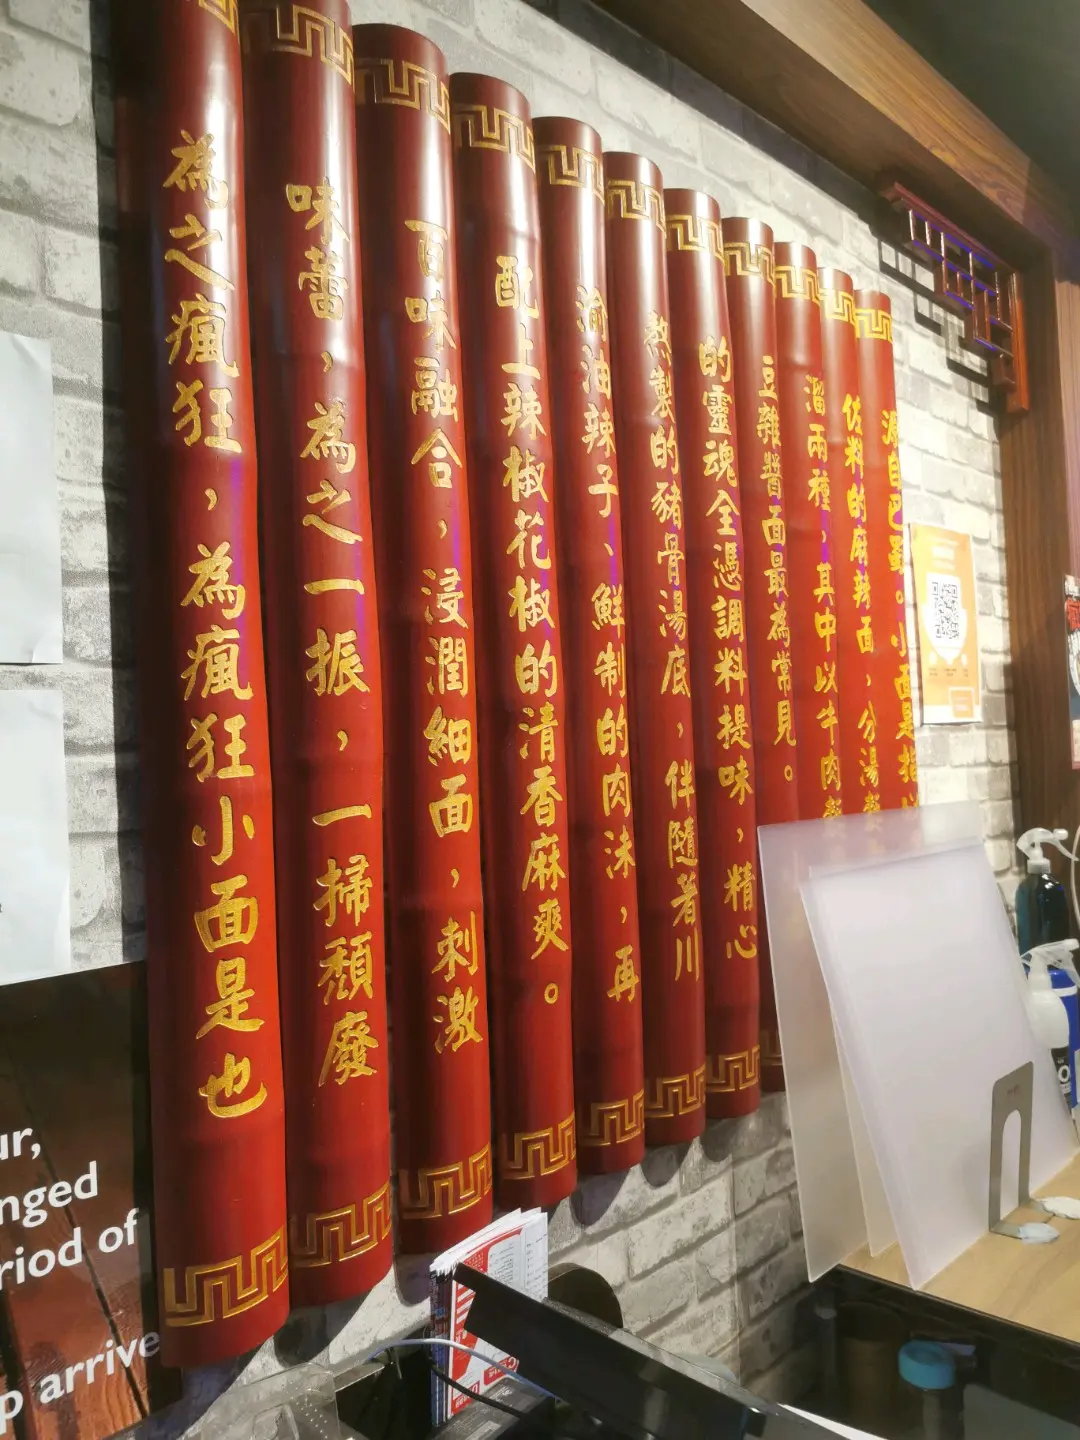 源自巴蜀。小面是指以
佐料的麻辣面，分湯
溜兩種，其中以牛肉
豆雜醬面最為常見。
的靈魂全憑調料提味，精心
熬製的豬骨湯底，伴隨着川
渝油辣子、鮮制的肉沫，再
配上辣椒花椒的清香麻爽。
百味融合，浸潤細面，刺激
味蕾，為之一振，一掃頹廢
為之瘋狂，為瘋狂小面是也
ur,
nged
riod of
p arrive